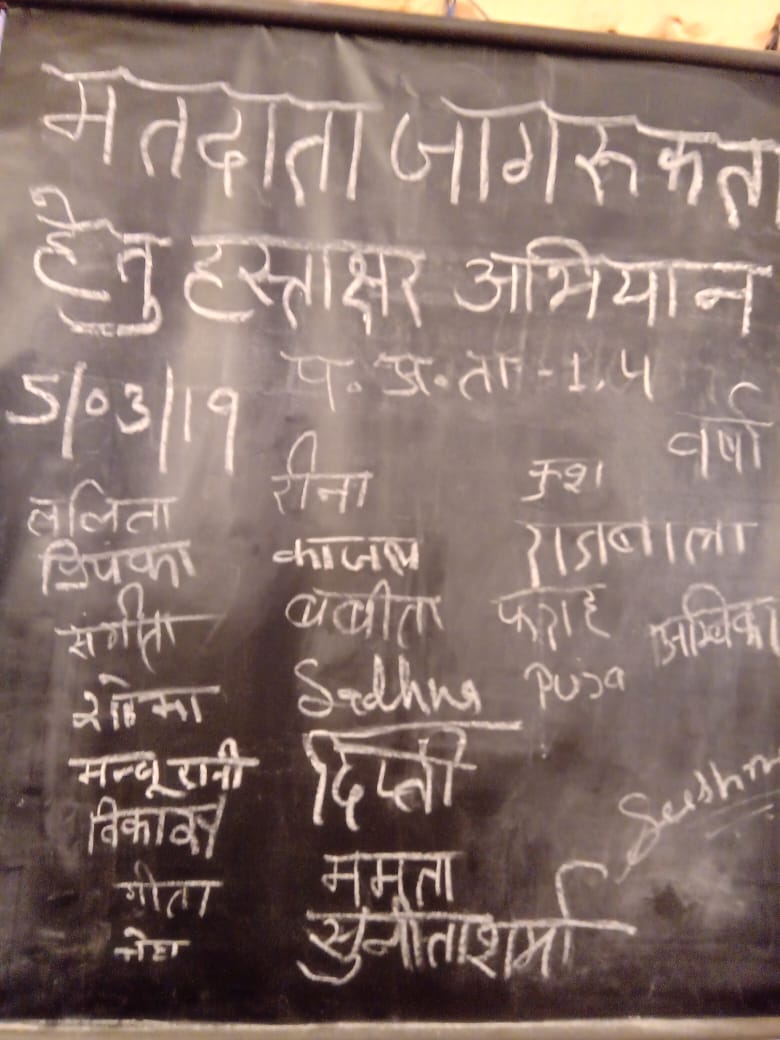 मतदाता जागरूकता
हेतु हस्ताक्षर अभियान
प. अ. ता - 1.4
5/03/19
वर्षा
ललिता रीना
काजल राजबाला
संगीता बबीता फराह अम्बिका
Sadhna Puja
मन्जू रानी दिप्ती
विकास
गीता ममता
नेहा सुनीता शर्मा